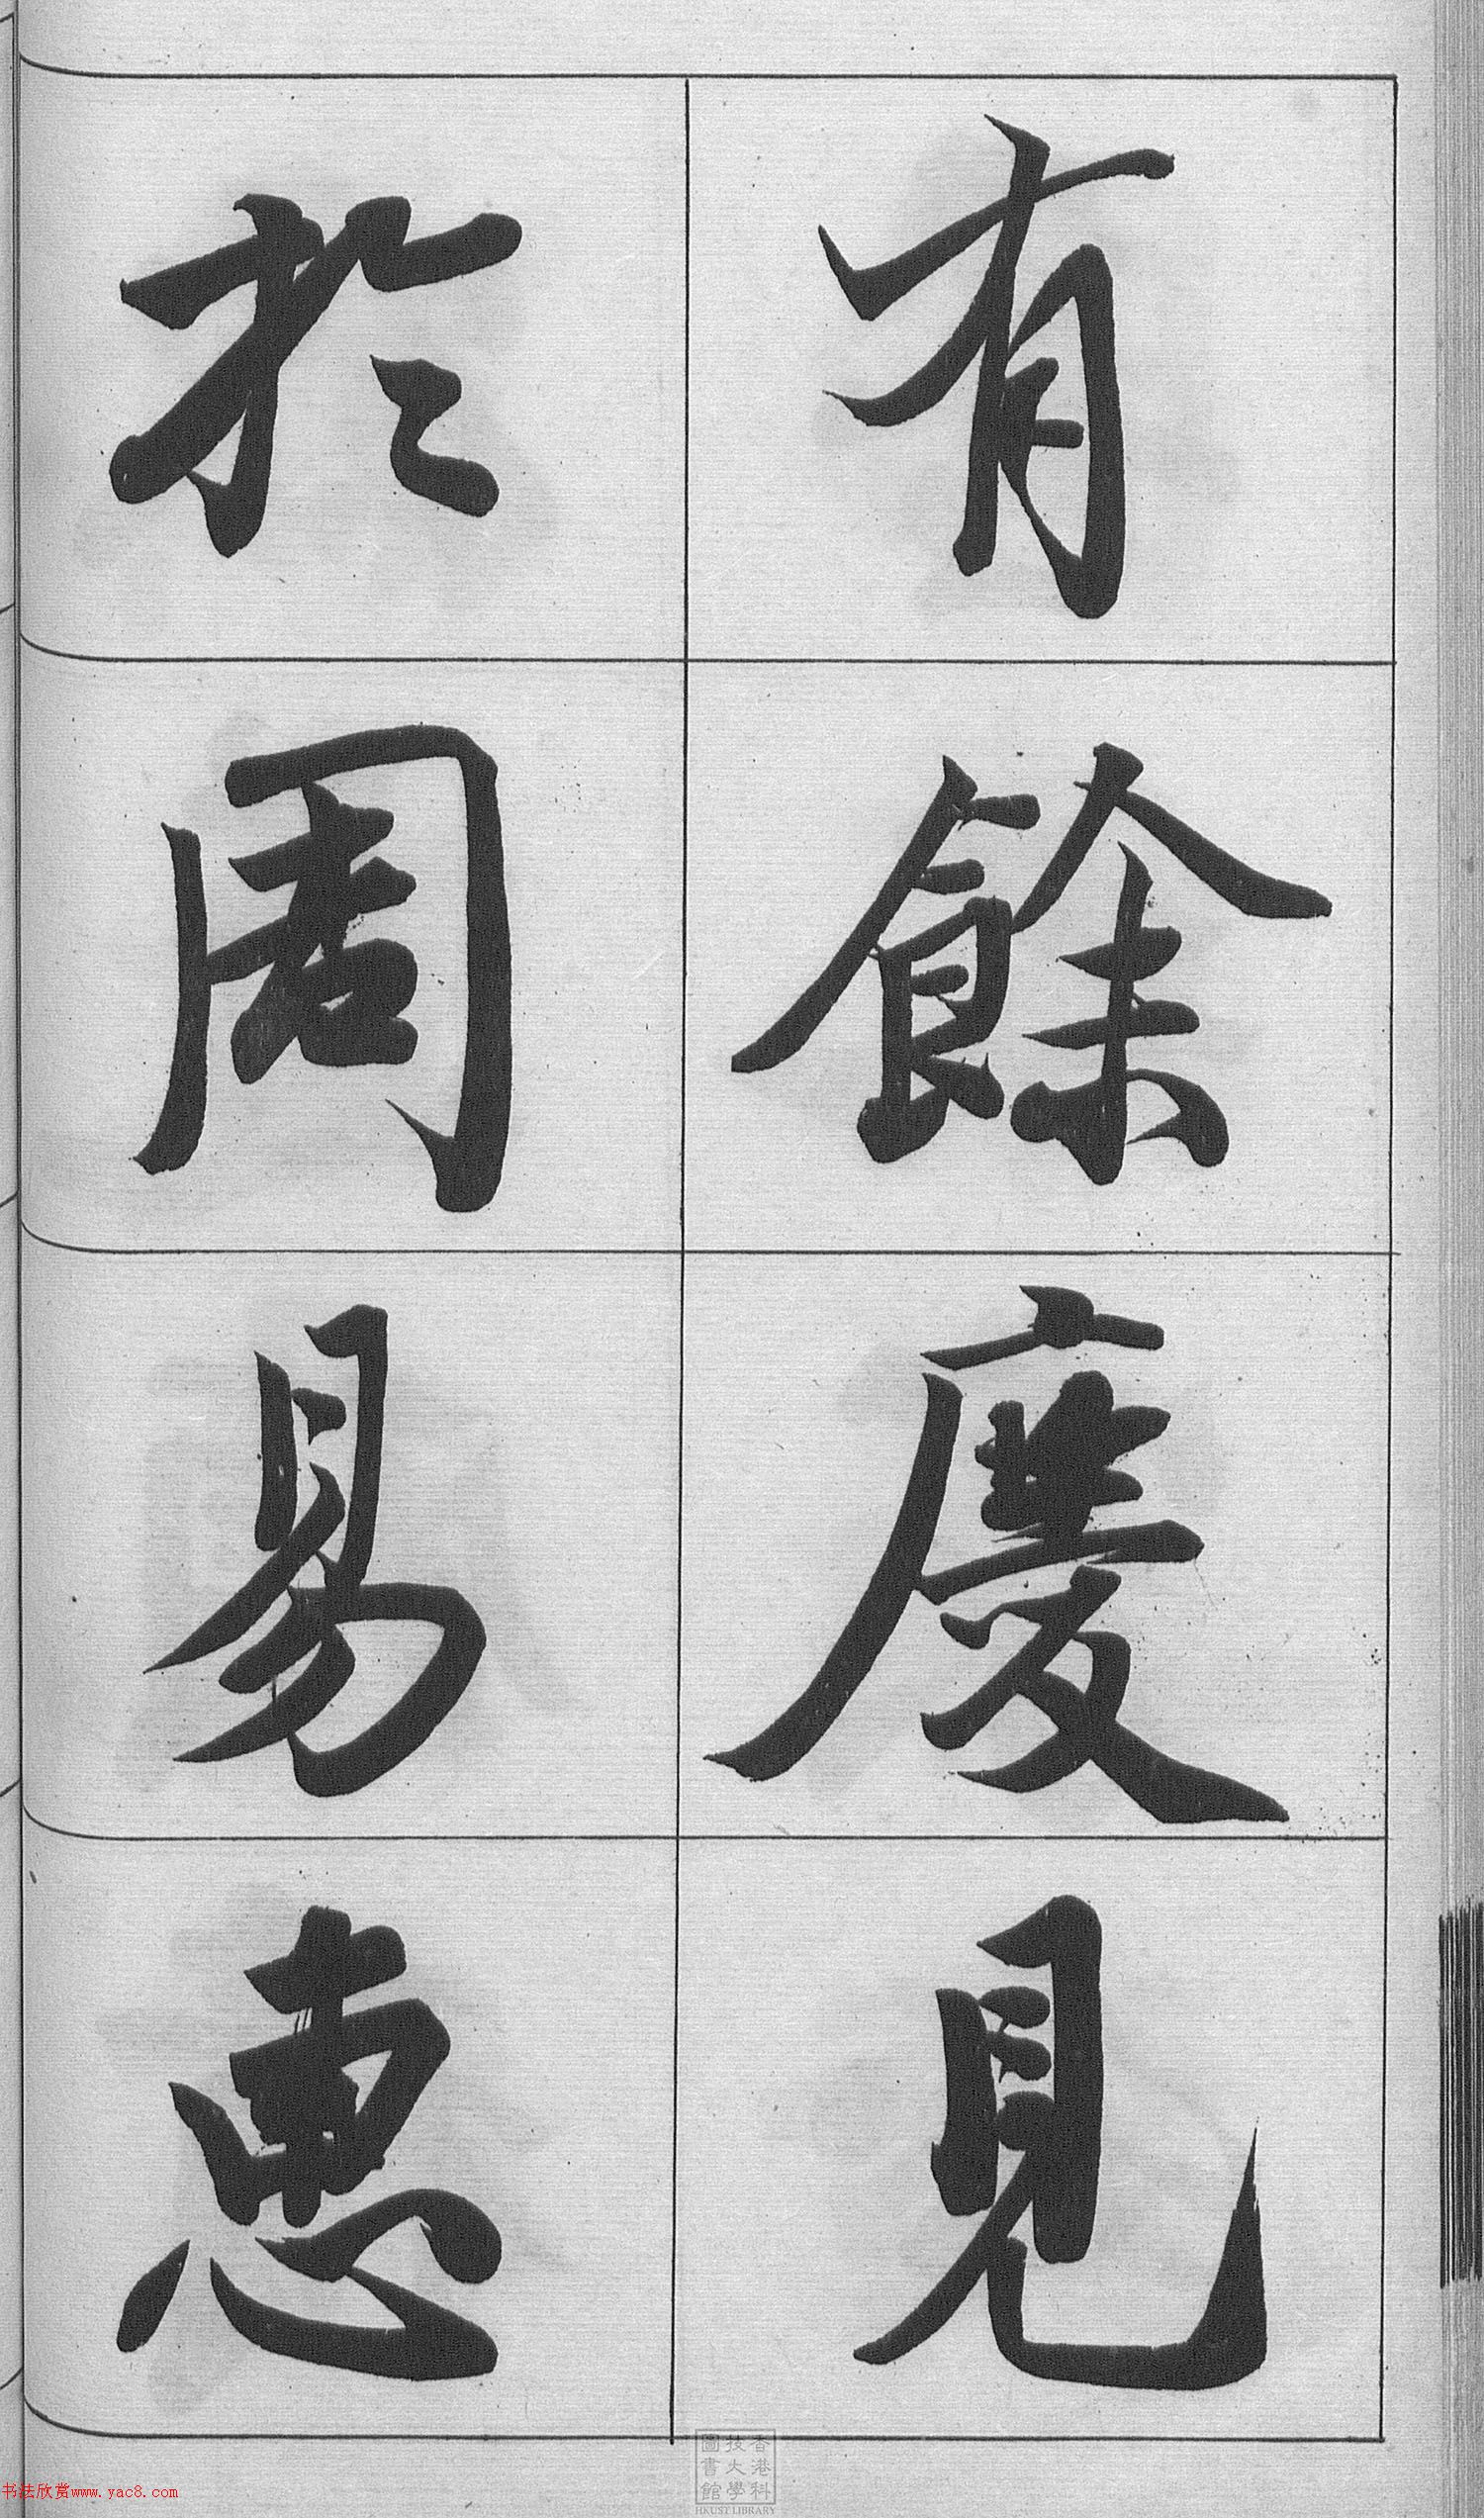 有餘慶見
於周易惠
香港科
技大學
圖書館
HKUST LIBRARY
书法欣赏www.yac8.com